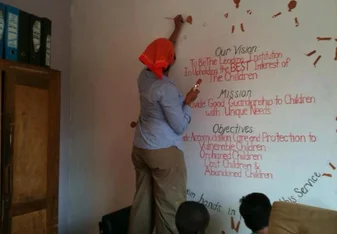 Our Vision
To Be The Leading Institution
In Upholding the BEST Interest of
The Children
Mission
Good Guardianship to Children
with Unique Needs
Objectives
Accommodation Care and Protection to
Vulnerable Children
Orphaned Children
Lost Children &
Abandoned Children
hands in
Service